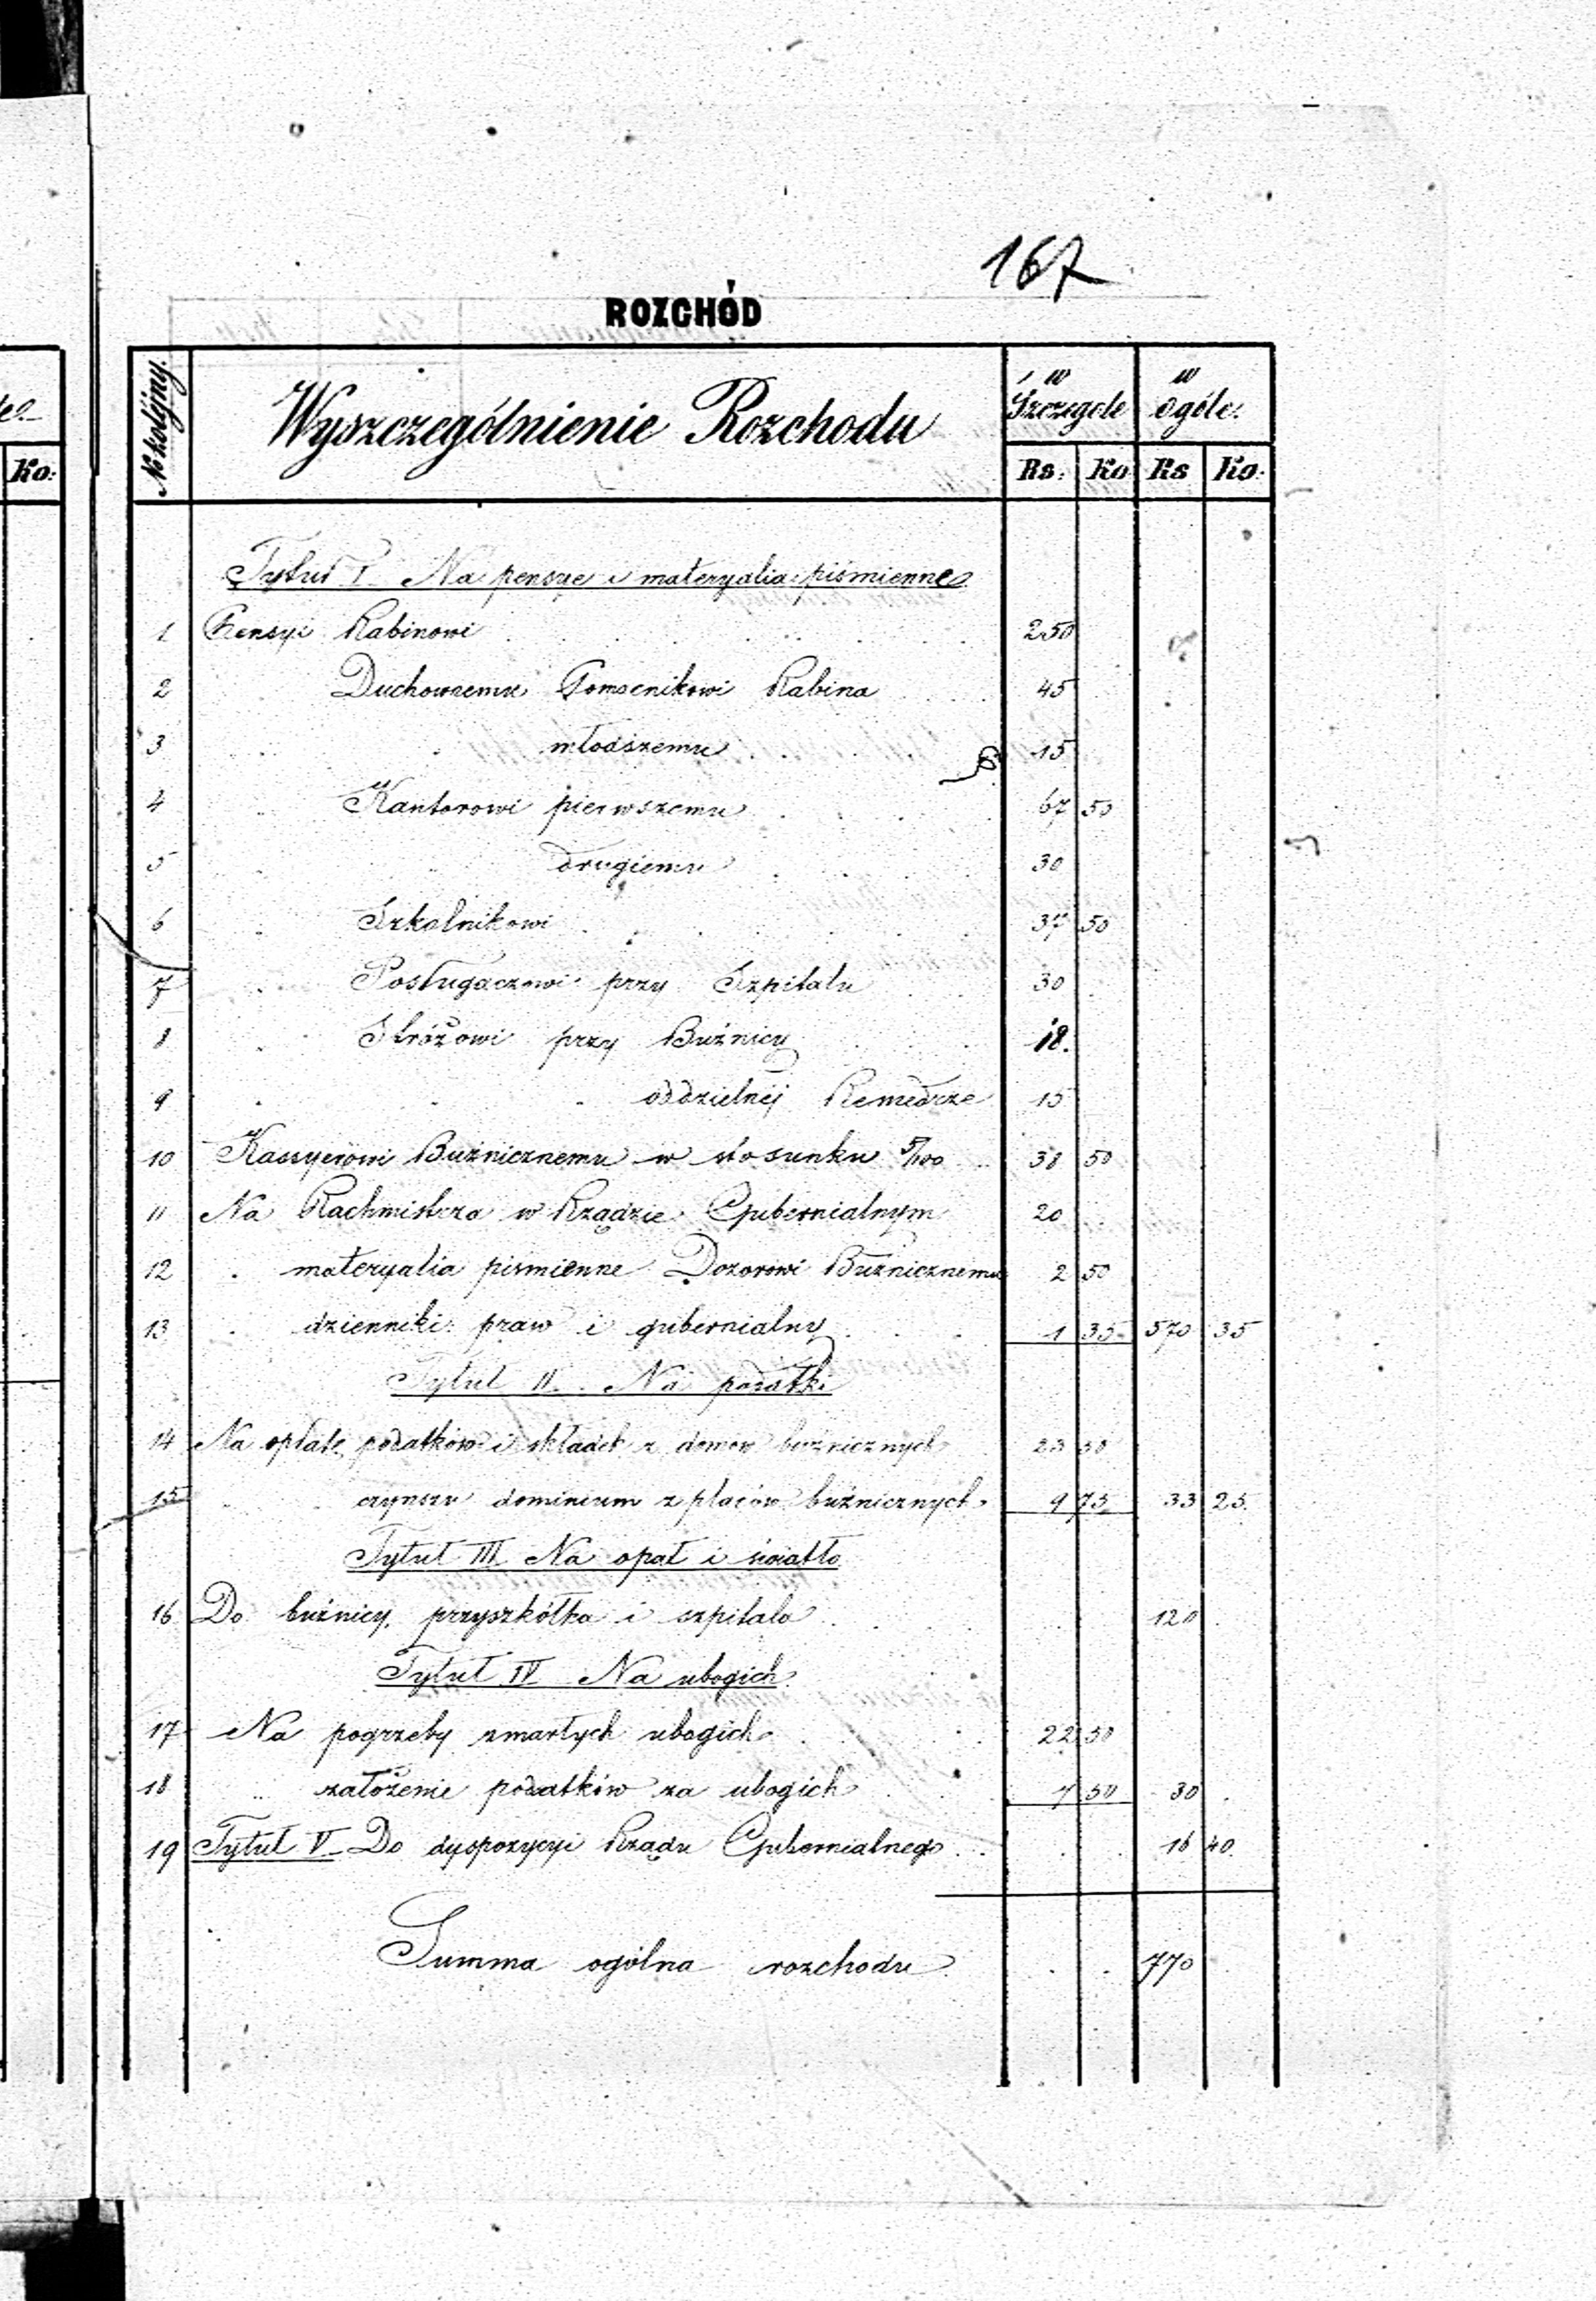 167
ROZCHÓD
Ko:
№ kolejny. Wyszczególnienie Rozchodu w Szczegole w ogóle.
Rs. Ko Rs Ko.
Tytuł I Na pensye i materyalia piśmienne
1 Pensyi Rabinowi 250
2 Duchownemu Pomocnikowi Rabina 45
3 młodszemu 15
4 Kantorowi pierwszemu 67 50
5 drugiemu 30
6 Szkolnikowi 37 50
7 Posługaczowi przy Szpitalu 30
8 Stróżowi przy Buźnicy 18.
9 oddzielnéj 15
10 Kassyerowi Buźnicznemu w stosunku 5/100 38 50
11 Na Rachmistrza w Rządzie Gubernialnym 20
12 materyalia piśmienne Dozorowi Buźnicznemu 2 50
13 dzienniki praw i gubernialny 1 35 570 35
Tytuł II. Na podatki
14 Na opłatę podatków i składek z domów buźnicznych 23 50
15 czynszu dominium z placów buźnicznych 9 75 33 25.
Tytuł III Na opał i światło
16 Do buźnicy, przyszkółka i szpitala 120
Tytuł IV Na ubogich
17 Na pogrzeby zmarłych ubogich 22 50
18 założenie podatków za ubogich 7 50 30
19 Tytuł V Do dyspozycyi Rządu Gubernialnego 16 40.
Summa ogólna rozchodu 770